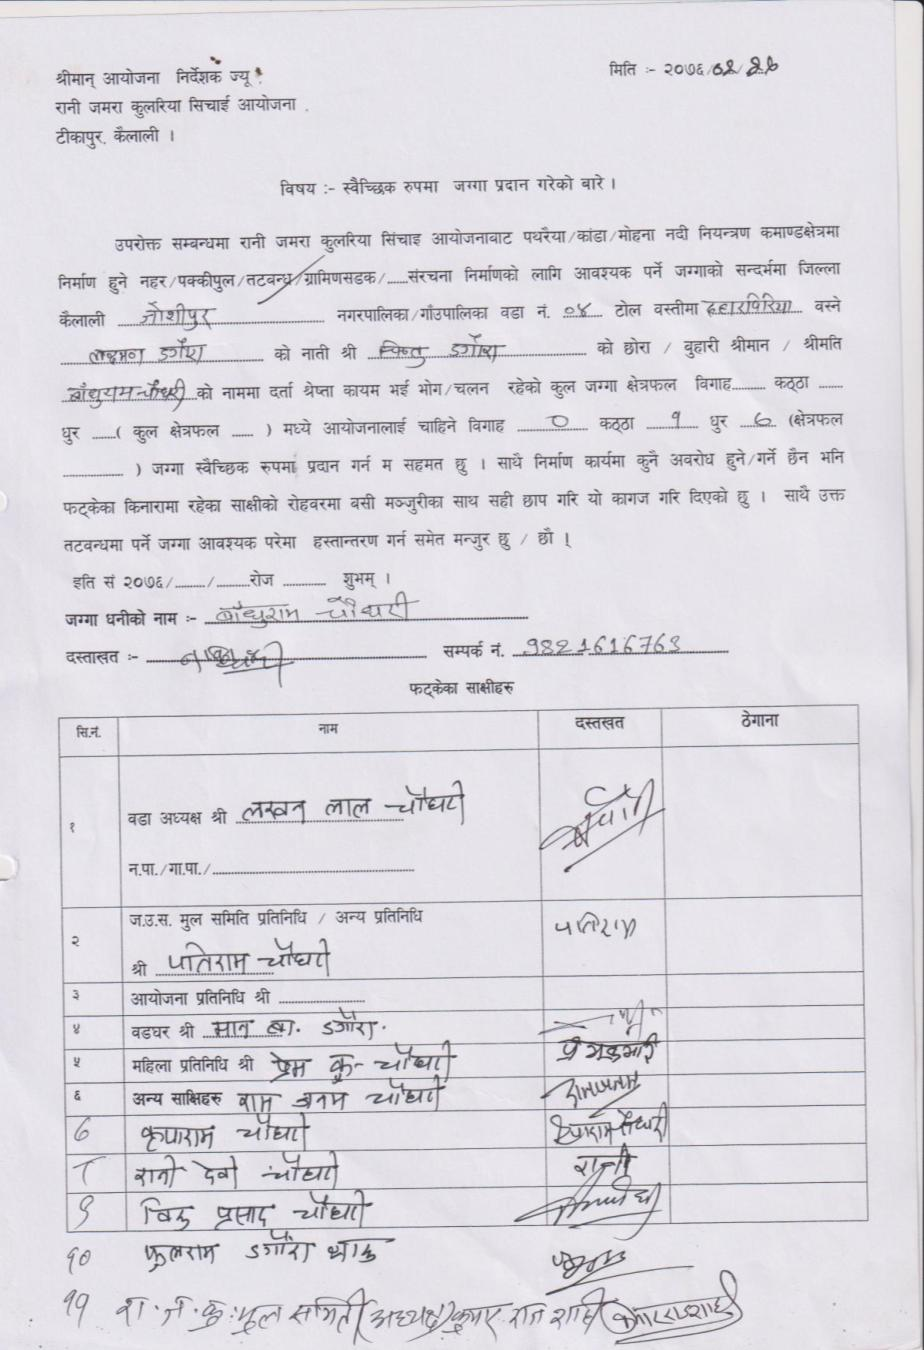 श्रीमान् आयोजना निर्देशक ज्यू
मिति :- २०७६/
रानी जमरा कुलरिया सिचाई आयोजना
टीकापुर, कैलाली ।
विषय :- स्वैच्छिक रुपमा जग्गा प्रदान गरेको बारे ।
उपरोक्त सम्बन्धमा रानी जमरा कुलरिया सिंचाइ आयोजनाबाट पथरैया/कांडा/मोहना नदी नियन्त्रण कमाण्डक्षेत्रमा
निर्माण हुने नहर/पक्कीपुल/तटवन्ध/ग्रामिणसडक/......संरचना निर्माणको लागि आवश्यक पर्ने जग्गाको सन्दर्भमा जिल्ला
कैलाली जोशीपुर नगरपालिका/गाँउपालिका वडा नं. ०४ टोल वस्तीमा वस्ने
लक्ष्मण डगौरा को नाती श्री डगौरा को छोरा / बुहारी श्रीमान / श्रीमति
चौधरी को नाममा दर्ता श्रेष्ता कायम भई भोग/चलन रहेको कुल जग्गा क्षेत्रफल विगाह.......... कठ्ठा .......
धुर ......( कुल क्षेत्रफल ...... ) मध्ये आयोजनालाई चाहिने विगाह ० कठ्ठा १ धुर ६ (क्षेत्रफल
................ ) जग्गा स्वैच्छिक रुपमा प्रदान गर्न म सहमत छु । साथै निर्माण कार्यमा कुनै अवरोध हुने/गर्ने छैन भनि
फट्केका किनारामा रहेका साक्षीको रोहवरमा बसी मञ्जुरीका साथ सही छाप गरि यो कागज गरि दिएको छु । साथै उक्त
तटबन्धमा पर्ने जग्गा आवश्यक परेमा हस्तान्तरण गर्न समेत मन्जुर छु / छौ ।
इति सं २०७६/........./.........रोज ............ शुभम् ।
जग्गा धनीको नाम :- बाँधुराम चौधरी
दस्ताखत :- सम्पर्क नं. 9821616763
फट्केका साक्षीहरु
सि.नं. नाम दस्तखत ठेगाना
१ वडा अध्यक्ष श्री लखन लाल चौधरी
न.पा./गा.पा./..............................
२ ज.उ.स. मुल समिति प्रतिनिधि / अन्य प्रतिनिधि
श्री पतिराम चौधरी पतिराम
३ आयोजना प्रतिनिधि श्री ......................
४ वडघर श्री मान ब. डगौरा.
५ महिला प्रतिनिधि श्री प्रेम कु- चौधरी
६ अन्य साक्षिहरु राम जनम चौधरी रामजनम
7 कृपाराम चौधरी कृपाराम चौधरी
8 रानी देवी चौधरी रानी
9 प्रसाद चौधरी
१० फुलराम डगौरा थारु
११ रा.ज.कु.मुल समिति (अध्यक्ष) कुमार राज शाही